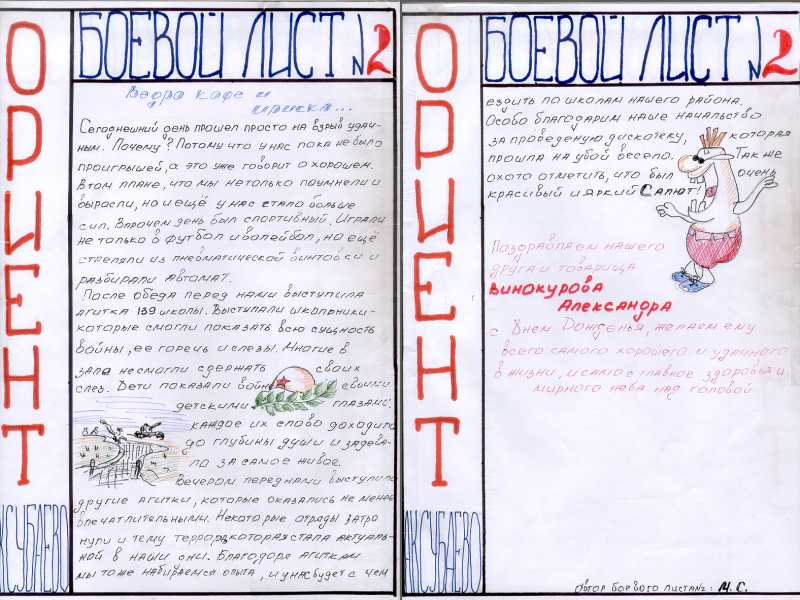 БОЕВОЙ ЛИСТ №2
ОРИЕНТ
АКСУБАЕВО
Ведра кофе и
ириски...
Сегоднешний день прошел просто на взрыв удач-
ным. Почему? Потому что у нас пока не было
проигрышей, а это уже говорит о хорошем.
В том плане, что мы нетолько поумнели и
выросли, но и ещё у нас стало больше
сил. Впрочем день был спортивный. Играли
не только в футбол и волейбол, но ещё
стреляли из пневматической винтовки и
разбирали автомат.
После обеда перед нами выступила
агитка 139 школы. Выступали школьники-
которые смогли показать всю сущность
войны, ее горечь и слезы. Многие в
зале несмогли сдержать своих
слез. Дети показали войну своими
детскими глазами.
каждое их слово доходило
до глубины души и задева-
ло за самое живое.
Вечером перед нами выступили
другие агитки, которые оказались не менее
впечатлительными. Некоторые отряды затро
нули и тему террора, которая стала актуаль-
ной в наши дни. Благодаря агиткам
мы тоже набираемся опыта, и у нас будет с чем
БОЕВОЙ ЛИСТ №2
ОРИЕНТ
АКСУБАЕВО
ездить по школам нашего района.
Особо благодарим наше начальство
за проведеную дискотеку, которая
прошла на убой весело. Так же
охота отметить, что был очень
красивый и яркий Салют!
Поздравляем нашего
друга и товарища
Винокурова
Александра
с Днем Рожденья, желаем ему
всего самого хорошего и удачного
в жизни, и самое главное здоровья и
мирного неба над головой
Автор боевого листа №2: М.С.